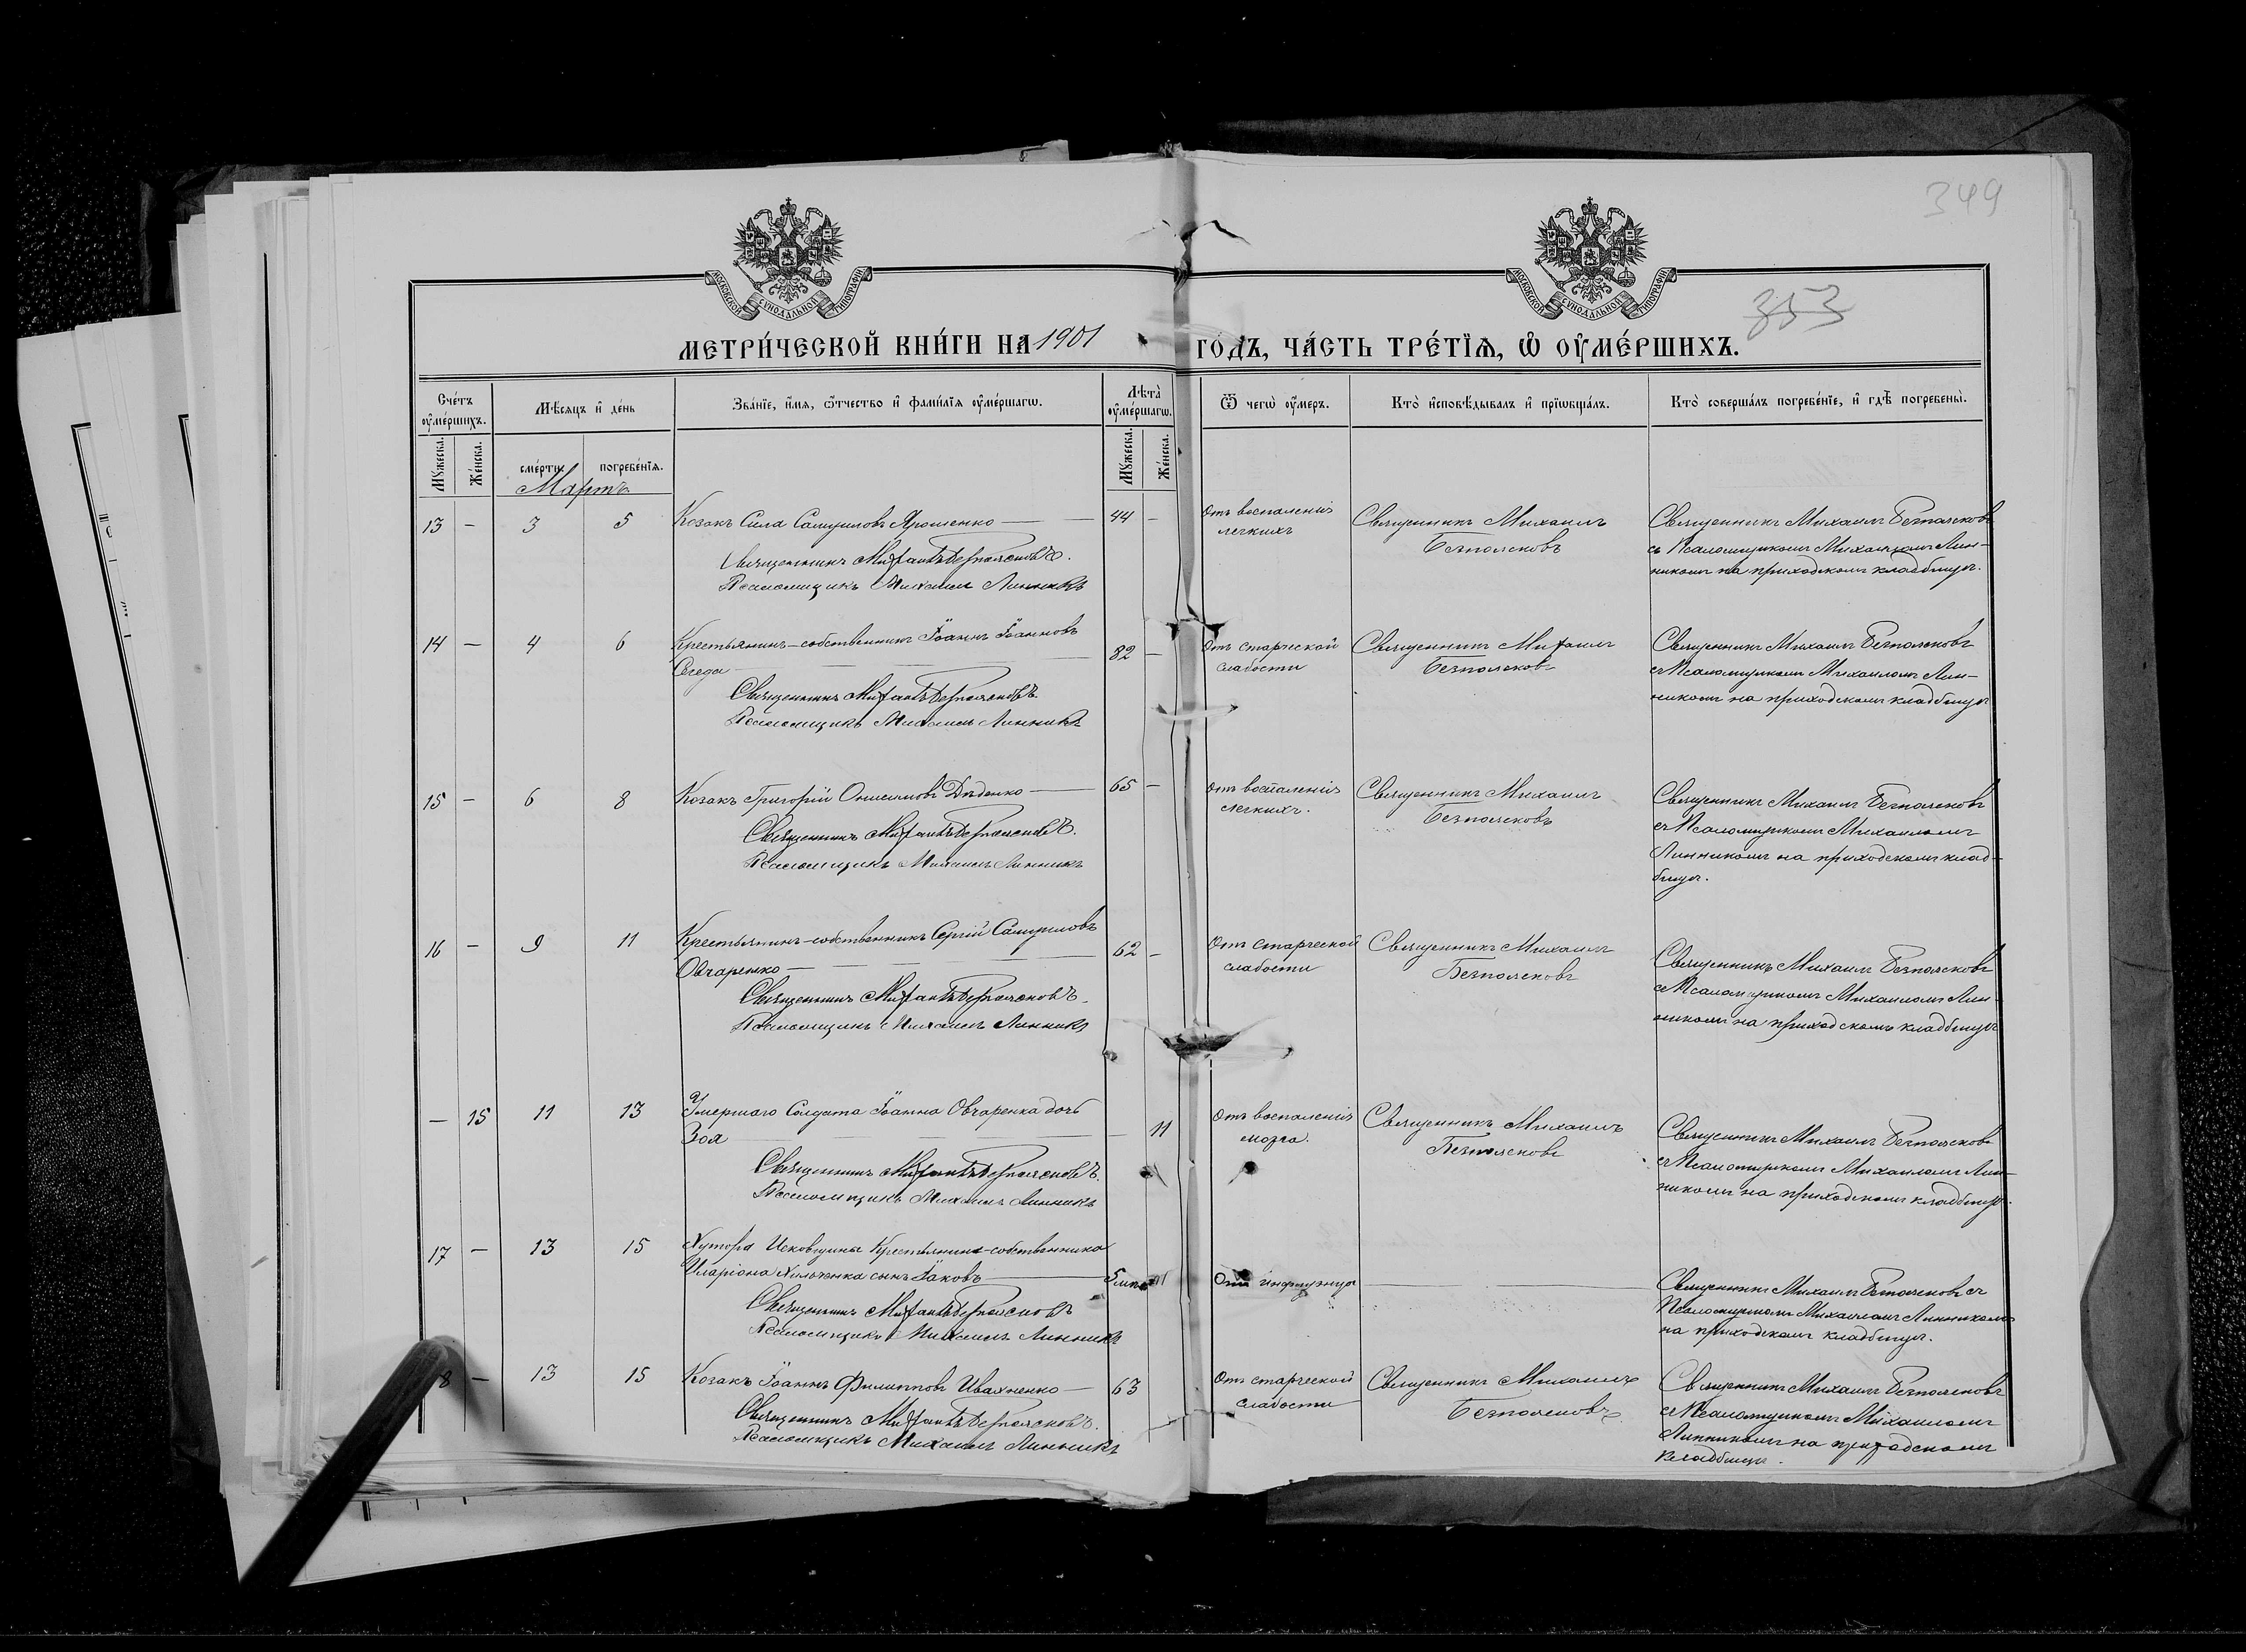 349
353
МОСКОВСКОЙ СѴНОДАЛЬНОЙ ТИПОГРАФІИ
МОСКОВСКОЙ СѴНОДАЛЬНОЙ ТИПОГРАФІИ
МЕТРИ́ЧЕСКОЙ КНИ́ГИ НА 1901 ГО́ДЪ, ЧА́СТЬ ТРЕ́ТІѦ, Ѡ҆ ОУ҆МЕ́РШИХЪ.
Сче́тъ оу҆ме́ршихъ.
Мꙋжеска.
Же́нска.
Мѣ́сяцъ и҆ де́нь
сме́рти.
погребе́нїѧ.
Зва́нїе, и҆́мѧ, ѻ҆́тчество и҆ фами́лїѧ оу҆ме́ршагѡ.
Лѣ́та оу҆ме́ршагѡ.
Мꙋжеска.
Же́нска.
Ѿ чегѡ̀ оу҆́меръ.
Кто̀ и҆сповѣ́дывалъ и҆ прїѡбща́лъ.
Кто̀ соверша́лъ погребе́нїе, и҆ гдѣ̀ погребены̀.
Мартъ
13 — 3 5 Козакъ Сила Самуиловъ Ярошенко — 44 —
Священникъ Михаилъ Безпоясковъ.
Псаломщикъ Михаилъ Линникъ
Отъ воспаленія
легкихъ
Священникъ Михаилъ
Безпоясковъ
Священникъ Михаилъ Безпоясковъ
съ Псаломщикомъ Михаиломъ Лин-
никомъ на приходскомъ кладбищѣ.
14 — 4 6 Крестьянинъ-собственникъ Іоаннъ Іоанновъ
Сегеда — 82 —
Священникъ Михаилъ Безпоясковъ
Псаломщикъ Михаилъ Линникъ
Отъ старческой
слабости
Священникъ Михаилъ
Безпоясковъ
Священникъ Михаилъ Безпоясковъ
съ Псаломщикомъ Михаиломъ Лин-
никомъ на приходскомъ кладбищѣ
15 — 6 8 Козакъ Григорій Онисимовъ Дѣденко — 65 —
Священникъ Михаилъ Безпоясковъ.
Псаломщикъ Михаилъ Линникъ
Отъ воспаленія
легкихъ.
Священникъ Михаилъ
Безпоясковъ
Священникъ Михаилъ Безпоясковъ
съ Псаломщикомъ Михаиломъ
Линникомъ на приходскомъ клад-
бищѣ.
16 — 9 11 Крестьянинъ-собственникъ Сергій Самуиловъ
Овчаренко — 62 —
Священникъ Михаилъ Безпоясковъ.
Псаломщикъ Михаилъ Линникъ
Отъ старческой
слабости
Священникъ Михаилъ
Безпоясковъ
Священникъ Михаилъ Безпоясковъ
съ Псаломщикомъ Михаиломъ Лин-
никомъ на приходскомъ кладбищѣ
— 15 11 13 Умершаго Солдата Іоанна Овчаренка дочь
Зоя — — 11
Священникъ Михаилъ Безпоясковъ.
Псаломщикъ Михаилъ Линникъ
Отъ воспаленія
мозга.
Священникъ Михаилъ
Безпоясковъ
Священникъ Михаилъ Безпоясковъ
съ Псаломщикомъ Михаиломъ Лин-
никомъ на приходскомъ кладбищѣ.
17 — 13 15 Хутора Исковщины Крестьянина-собственника
Иларіона Хильченка сынъ Іаковъ —
Священникъ Михаилъ Безпоясковъ
Псаломщикъ Михаилъ Линникъ
Отъ инфлуэнцы —
Священникъ Михаилъ Безпоясковъ съ
Псаломщикомъ Михаиломъ Линникомъ
на приходскомъ кладбищѣ.
8 — 13 15 Козакъ Іоаннъ Филипповъ Ивахненко — 63
Священникъ Михаилъ Безпоясковъ.
Псаломщикъ Михаилъ Линникъ
Отъ старческой
слабости
Священникъ Михаилъ
Безпоясковъ
Священникъ Михаилъ Безпоясковъ
съ Псаломщикомъ Михаиломъ
Линникомъ на приходскомъ
кладбищѣ.